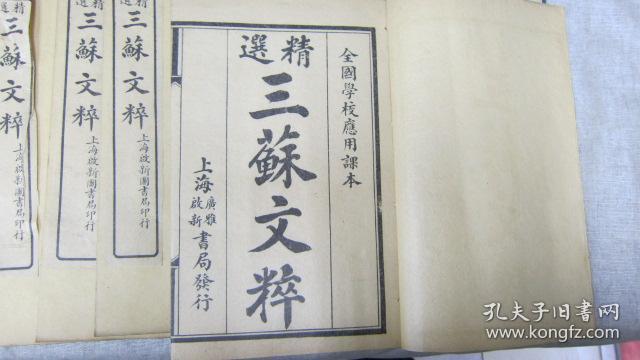 全國學校應用課本
精選
三蘇文粹
上海廣雅啟新書局發行
精選
三蘇文粹
上海啟新圖書局印行
選
三蘇文粹
上海啟新圖書局印行
精選
三蘇文粹
上海啟新圖書局印行
孔夫子旧书网
www.kongfz.com